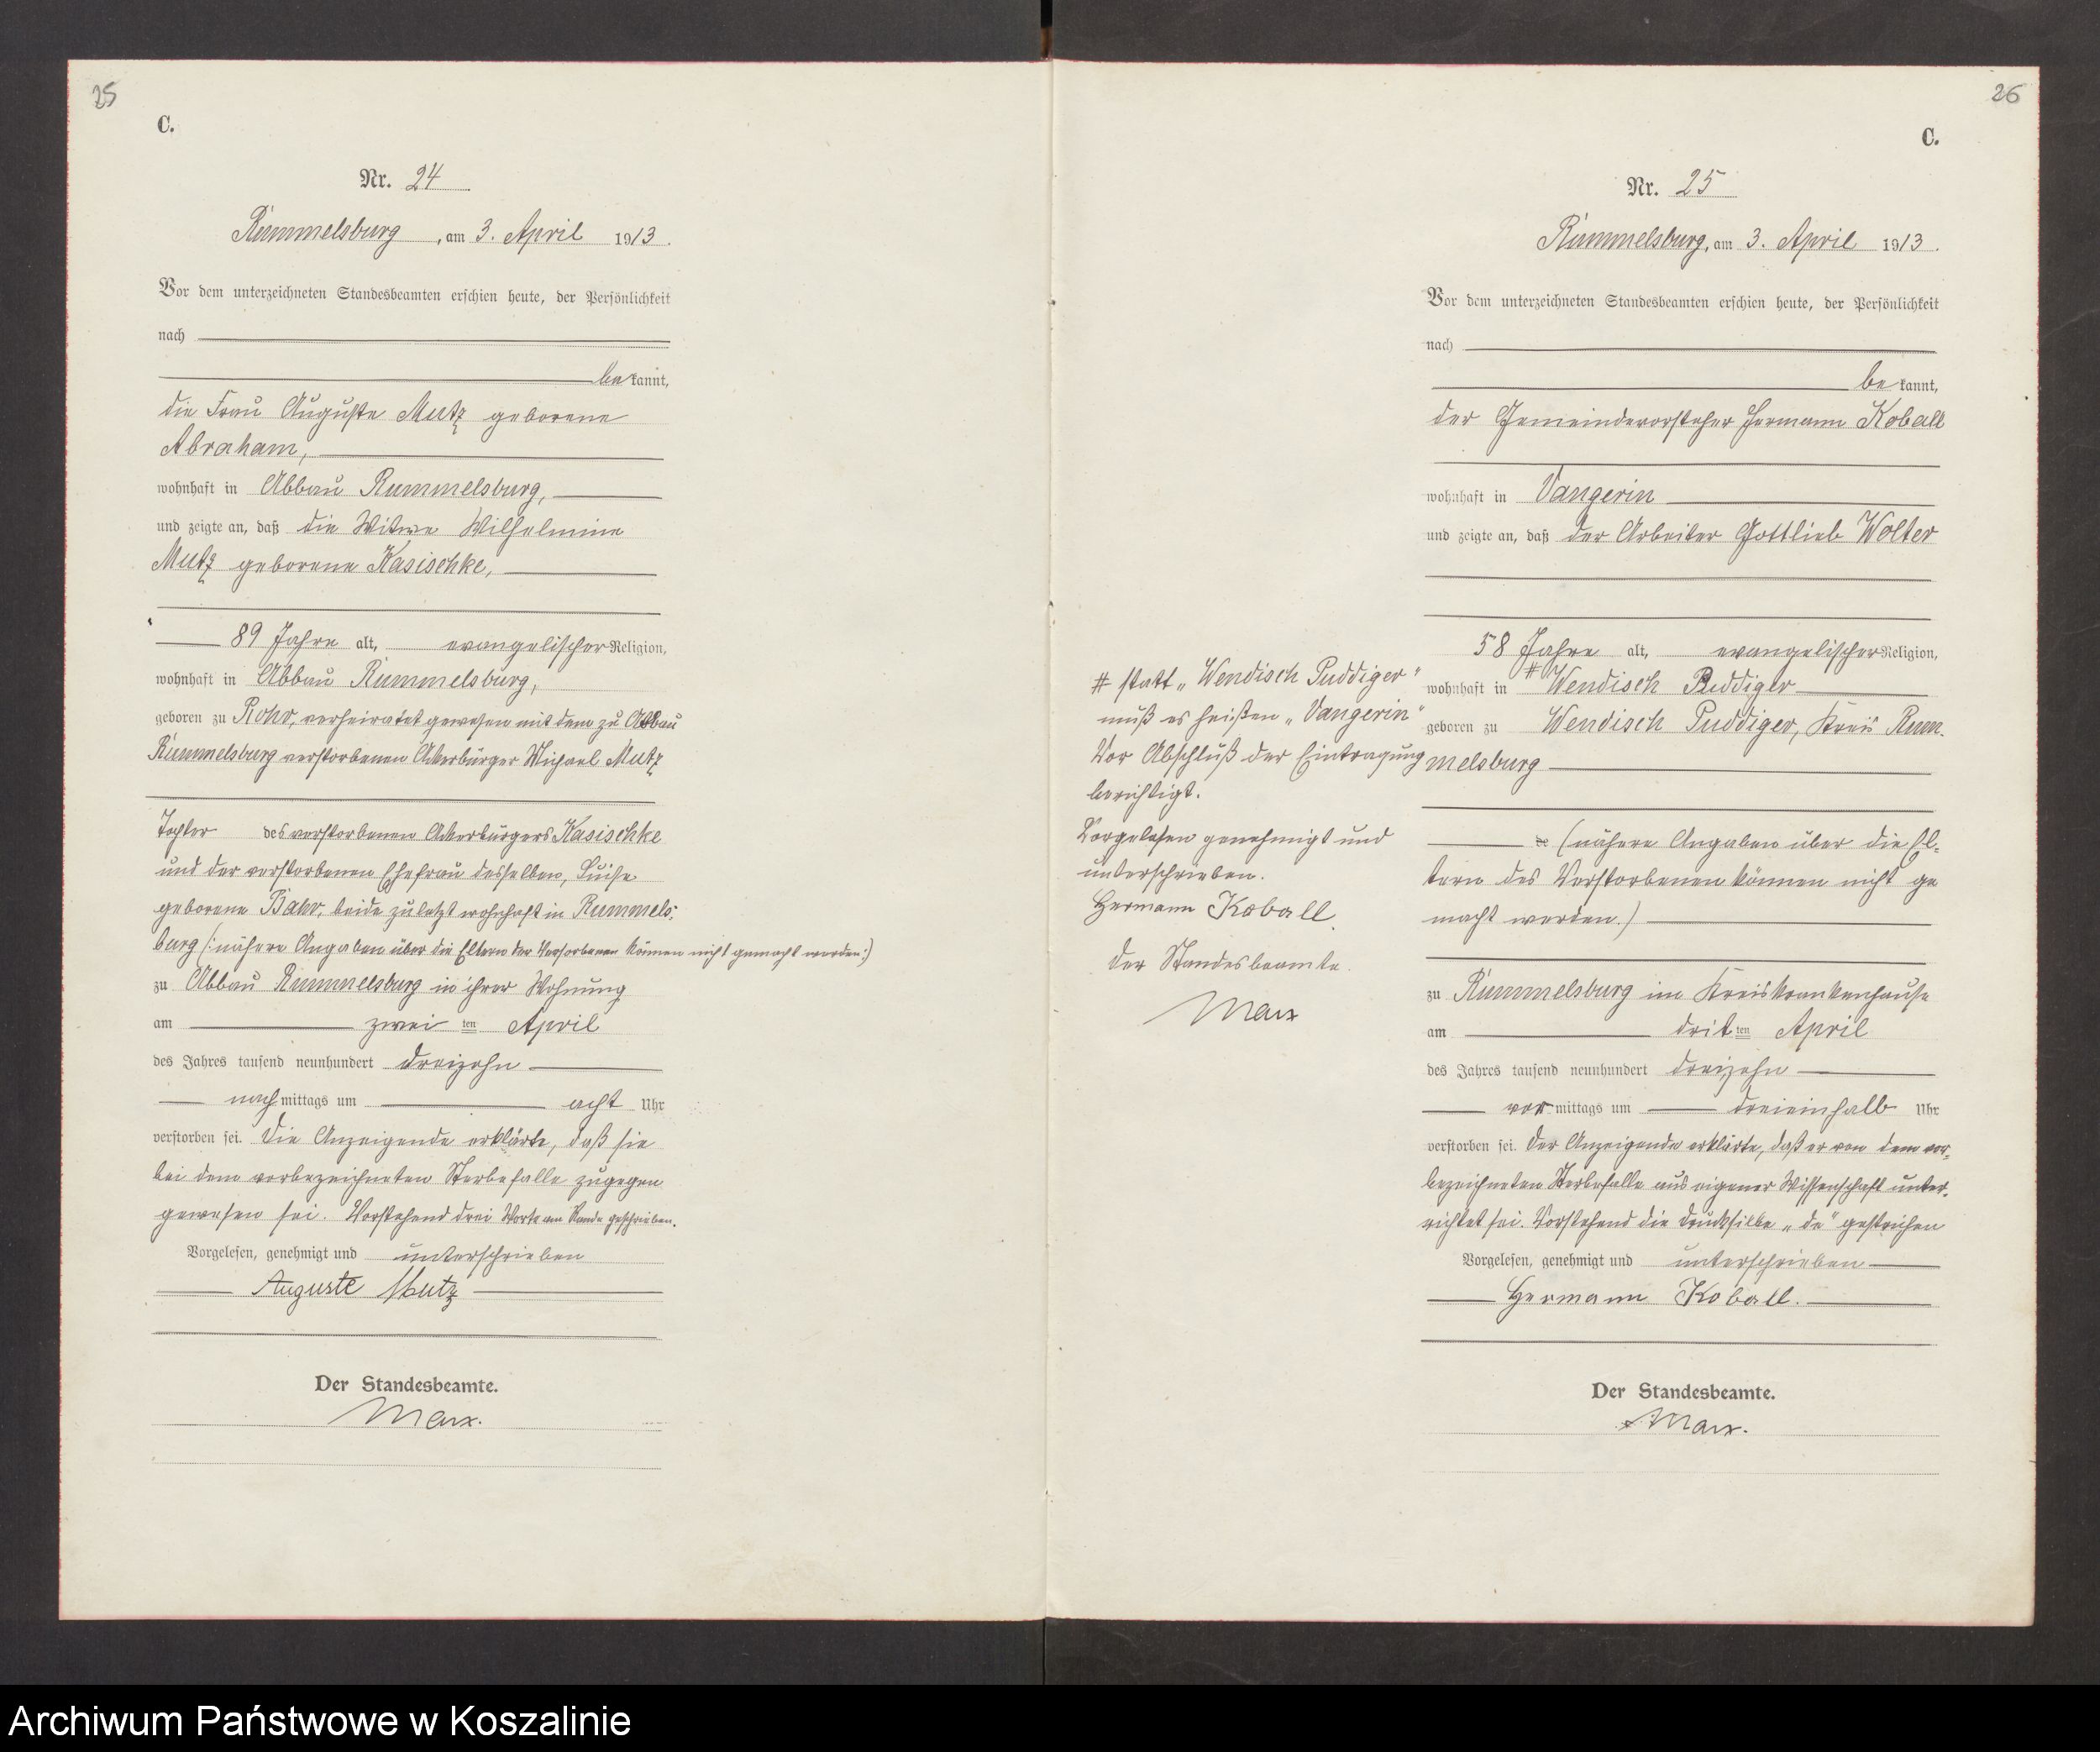 25
C.
Nr. 24
Rummelsburg, am 3. April 1913.
Vor dem unterzeichneten Standesbeamten erschien heute, der Persönlichkeit
nach
bekannt,
die Frau Auguste Mutz geborene
Abraham,
wohnhaft in Abbau Rummelsburg,
und zeigte an, daß die Witwe Wilhelmine
Mutz geborene Kasischke,
89 Jahre alt, evangelischer Religion,
wohnhaft in Abbau Rummelsburg,
geboren zu Rohr, verheiratet gewesen mit dem zu Abbau
Rummelsburg verstorbenen Ackerbürger Michael Mutz
Tochter des verstorbenen Ackerbürgers Kasischke
und der verstorbenen Ehefrau desselben, Luise
geborene Bahr, beide zuletzt wohnhaft in Rummels-
burg (: nähere Angaben über die Eltern der Verstorbenen können nicht gemacht werden :)
zu Abbau Rummelsburg in ihrer Wohnung
am zweiten April
des Jahres tausend neunhundert dreizehn
nachmittags um acht Uhr
verstorben sei. Die Anzeigende erklärte, daß sie
bei dem vorbezeichneten Sterbefalle zugegen
gewesen sei. Vorstehend drei Worte am Rande geschrieben.
Vorgelesen, genehmigt und unterschrieben
Auguste Mutz
Der Standesbeamte.
Marx.
26
C.
Nr. 25
Rummelsburg, am 3. April 1913.
Vor dem unterzeichneten Standesbeamten erschien heute, der Persönlichkeit
nach
bekannt,
der Gemeindevorsteher Hermann Koball
wohnhaft in Vangerin
und zeigte an, daß der Arbeiter Gottlieb Wolter
58 Jahre alt, evangelischer Religion,
wohnhaft in # Wendisch Puddiger
geboren zu Wendisch Puddiger, Kreis Rum-
melsburg
de (nähere Angaben über die El-
tern des Verstorbenen können nicht ge
macht werden.)
zu Rummelsburg im Kreiskrankenhause
am dritten April
des Jahres tausend neunhundert dreizehn
vormittags um dreieinhalb Uhr
verstorben sei. Der Anzeigende erklärte, daß er von dem vor-
bezeichneten Sterbefalle aus eigener Wissenschaft unter-
richtet sei. Vorstehend die Drucksilbe „de“ gestrichen
Vorgelesen, genehmigt und unterschrieben
Hermann Koball.
Der Standesbeamte.
Marx.
# statt „Wendisch Puddiger“
muß es heißen „Vangerin“
Vor Abschluß der Eintragung
berichtigt.
Vorgelesen genehmigt und
unterschrieben.
Hermann Koball.
Der Standesbeamte.
Marx
Archiwum Państwowe w Koszalinie